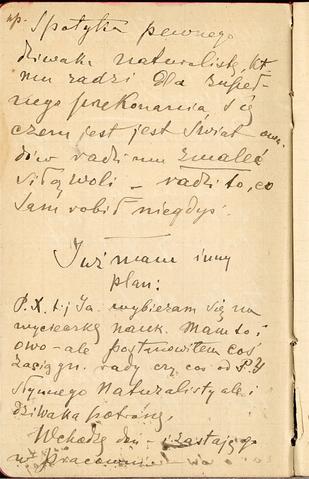 np. Spotyka pewnego
dziwaka naturalistę, kt.
mu radzi dla zupeł-
nego przekonania się
czem jest jest świat owa-
dów radzi mu zmaleć
siłą woli – radzi to, co
sam robił niegdyś.
Już mam inny
plan:
P.X. t.j Ja. wybieram się na
wycieczkę nauk. Mam to i
owo – ale postanowiłem coś
zasięgn. rady czy coś od P.Y
słynnego Naturalisty ale i
dziwaka
Wchodzę doń – i zastaję go
w Pracowni